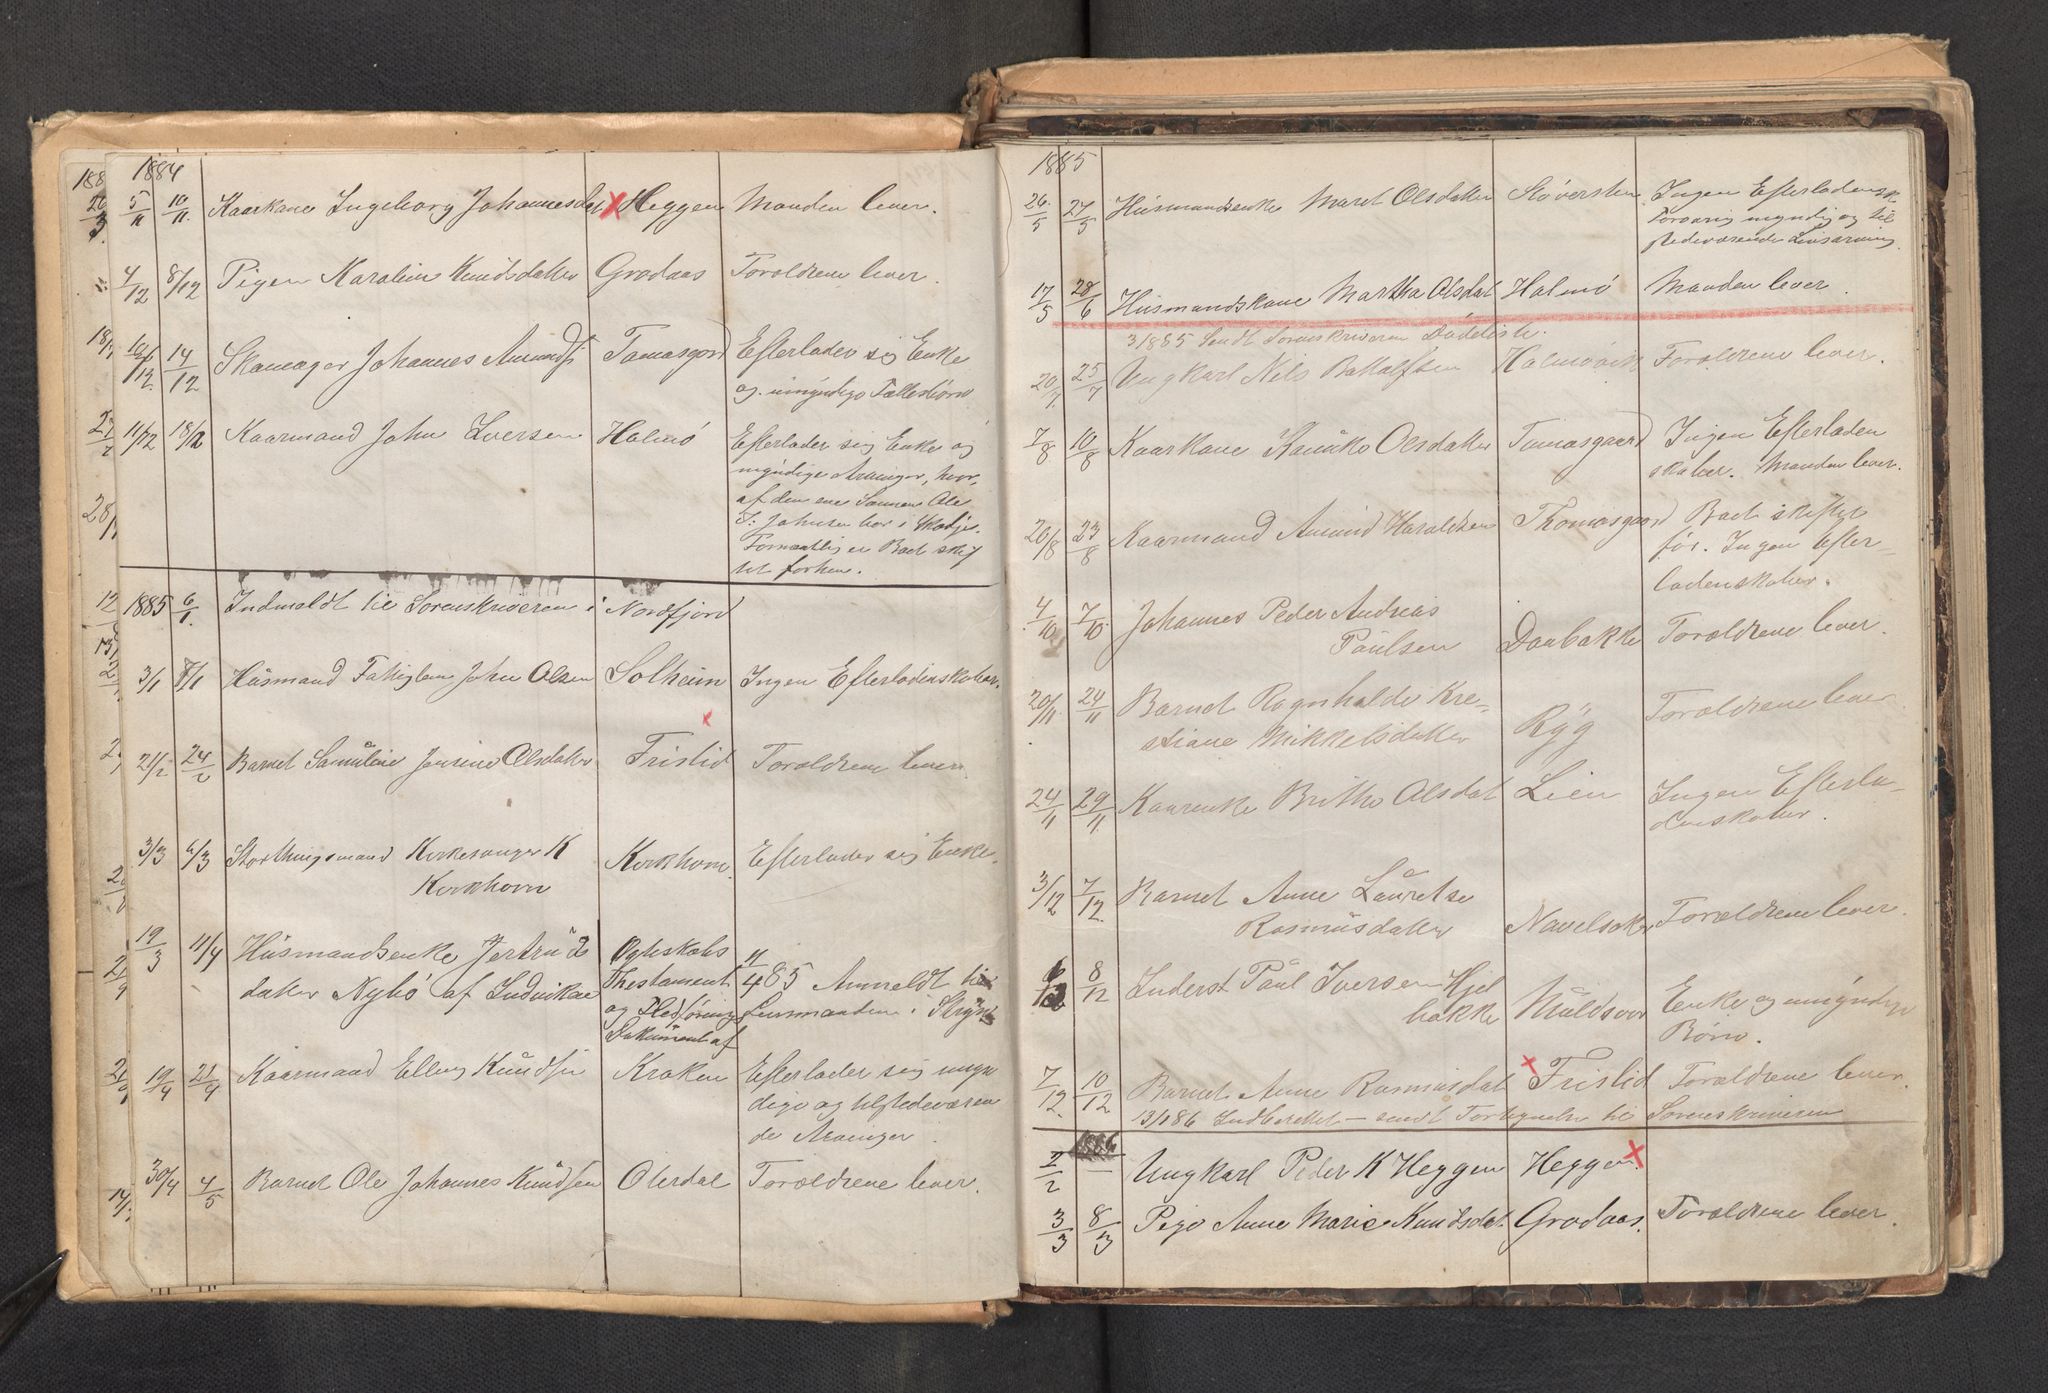 1884
5/11 10/11 Kaarkone Ingeborg Johannesdat Heggen Manden lever.
4/12 8/12 Pigen Karoline Knudsdatter Grodaas Forældrene lever.
14/12 Skomager Johannes Amundss Tomasgard Efterlader sig Enke
og umyndige Fællesbørn
11/12 18/12 Kaarmand John Iversen Halmø Efterlader sig Enke og
myndige Arvinger, hvor-
af den ene Sønnen Ole
J. Johnsen bor i Skodje.
Formentlig er Boet skif
tet forhen.
1885 6/1 Indmeldt til Sorenskriveren i Nordfjord
3/1 8/1 Husmand Fattiglem John Olsen Solheim Ingen Efterladenskaber.
21/2 24/2 Barnet Samuline Jensine Olsdatter Frislid Forældrene lever
3/3 6/3 Storthingsmand Kirkesanger K Kirkhorn. Efterlader sig Enke.
Kirkhorn
19/3 11/4 Husmandsenke Jertruds Ægteskabs 11/4 85 Anmeldt til
datter Nybø af Ludvikae Thestament Lensmanden i Stryn
og Fledføring
Dokument af
19/4 22/4 Kaarmand Elling Knudsen Kroken Efterlader sig mynd
dige og tilstedeværen
de Arvinger.
30/4 4/5 Barnet Ole Johannes Knudsen Oterdal Forældrene lever.
1885
26/5 27/5 Husmandsenke Maret Olsdatter Støversten Ingen Efterladensk
Forøvrig myndig og til
stedeværende Livsarving
17/5 28/6 Husmandskone Martha Olsdat Halmø Manden lever.
3/1885 Sendt Sorenskriveren Dødsliste.
20/7 25/7 Ungkarl Nils Bottolfsen Halmøvik Forældrene lever.
7/8 10/8 Kaarkone Olsdatter Tomasgaard Ingen Efterladen
skaber. Manden lever.
20/8 23/8 Kaarmand Amund Haraldsen Thomasgaard Boet skiftet
før. Ingen Efter-
ladenskaber.
4/10 7/10 Johannes Peder Andreas
Paulsen Donbakke Forældrene lever.
20/11 24/11 Barnet Ragnhilde Kre- Forældrene lever
stiane Mikkelsdatter Ryg
24/11 29/11 Kaarenke Brithe Olsdat Lien Ingen Efterla-
denskaber.
3/12 7/12 Barnet Anne Lauretse
Rasmusdatter Navelsaker Forældrene lever.
6/12 8/12 Inderst Paul Iversen Hjel
bakke Muldsvor Enke og umyndige
Børn.
7/12 10/12 Barnet Anne Rasmusdat Frislid Forældrene lever.
13/1 86 Indberettet - sendt Fortegnelse til Sorenskriveren
1886
2/2 — Ungkarl Peder K Heggen Heggen.
3/3 8/3 Pige Anne Marie Knudsdat. Grodaas. Forældrene lever.